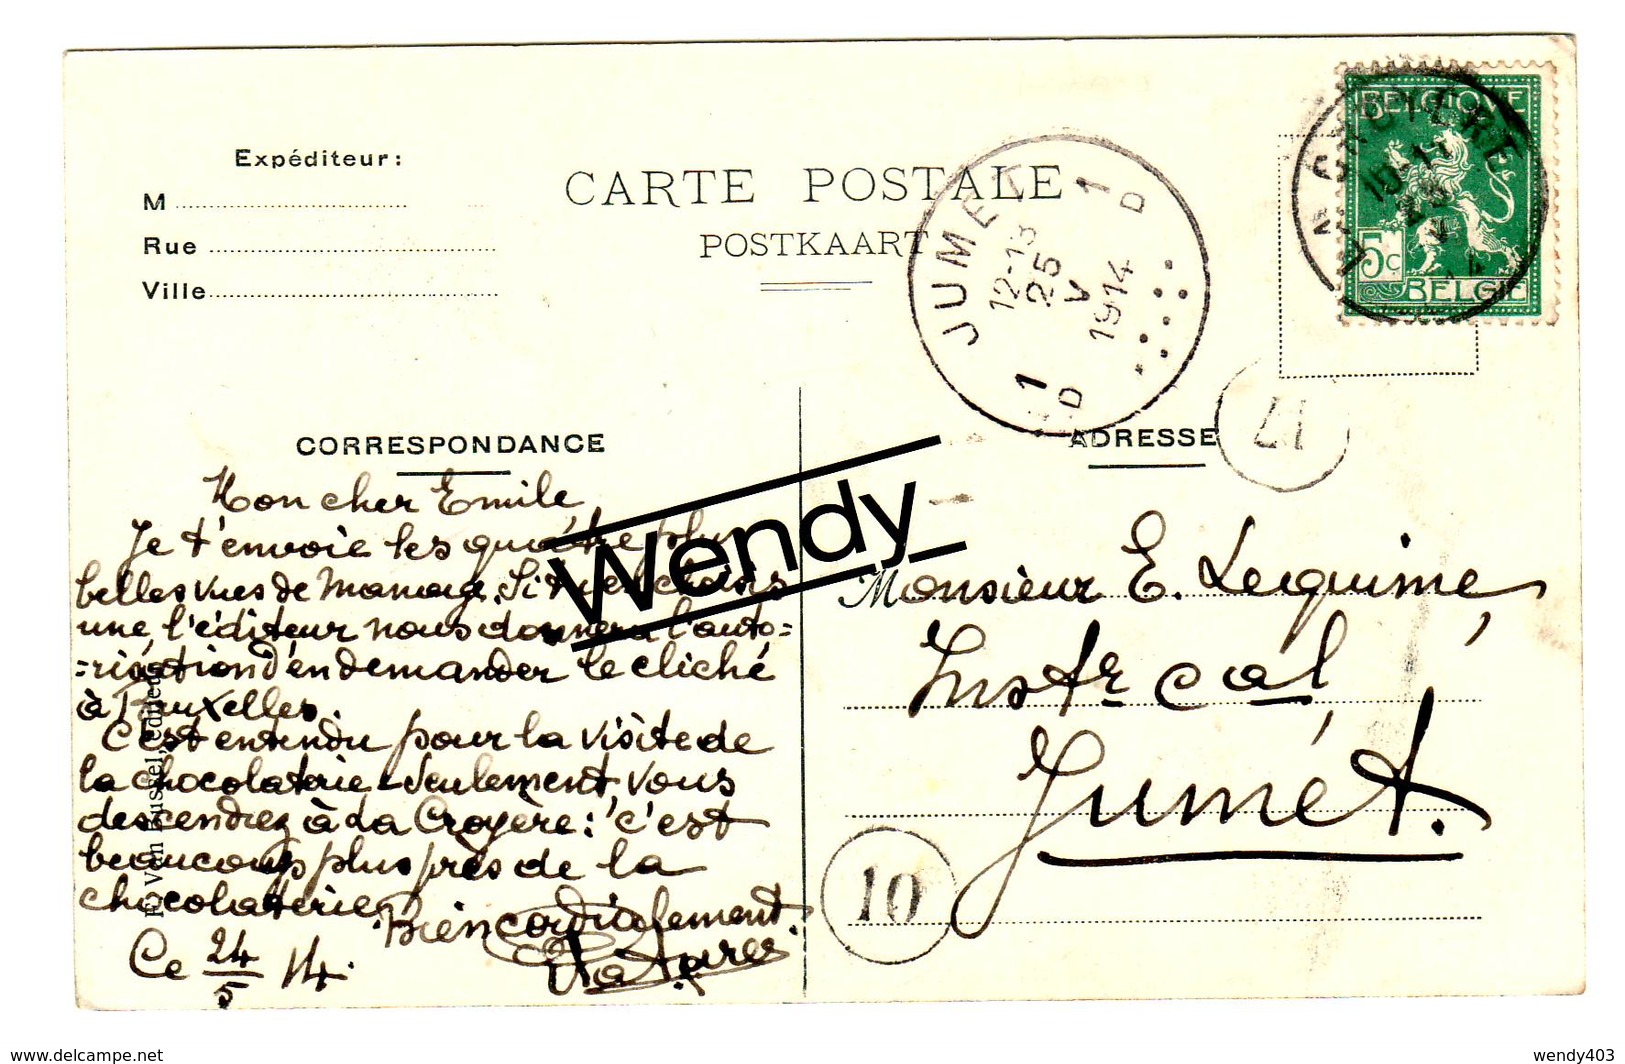 Expéditeur:
M
Rue
Ville
CARTE POSTALE
POSTKAART
JUMET
1 D
12-13
25
V
1914
1 D
LA CROYERE
10-11
25
V
BELGIQUE
5c
BELGIE
CORRESPONDANCE
Mon cher Emile
Je t'envoie les quatre plus
belles vues de Manage. Si tu en choisis
une, l'éditeur nous donnera l'auto=
=risation d'en demander le cliché
à Bruxelles.
C'est entendu pour la visite de
la chocolaterie - Seulement vous
descendrez à La Croyère: c'est
beaucoup plus près de la
chocolaterie
Bien cordialement.
Ce 24/5 14.
Van Bussel, éditeur
Wendy
ADRESSE
17
Monsieur E. Lequime,
Instr cal
Jumet.
10
delcampe.net
wendy403